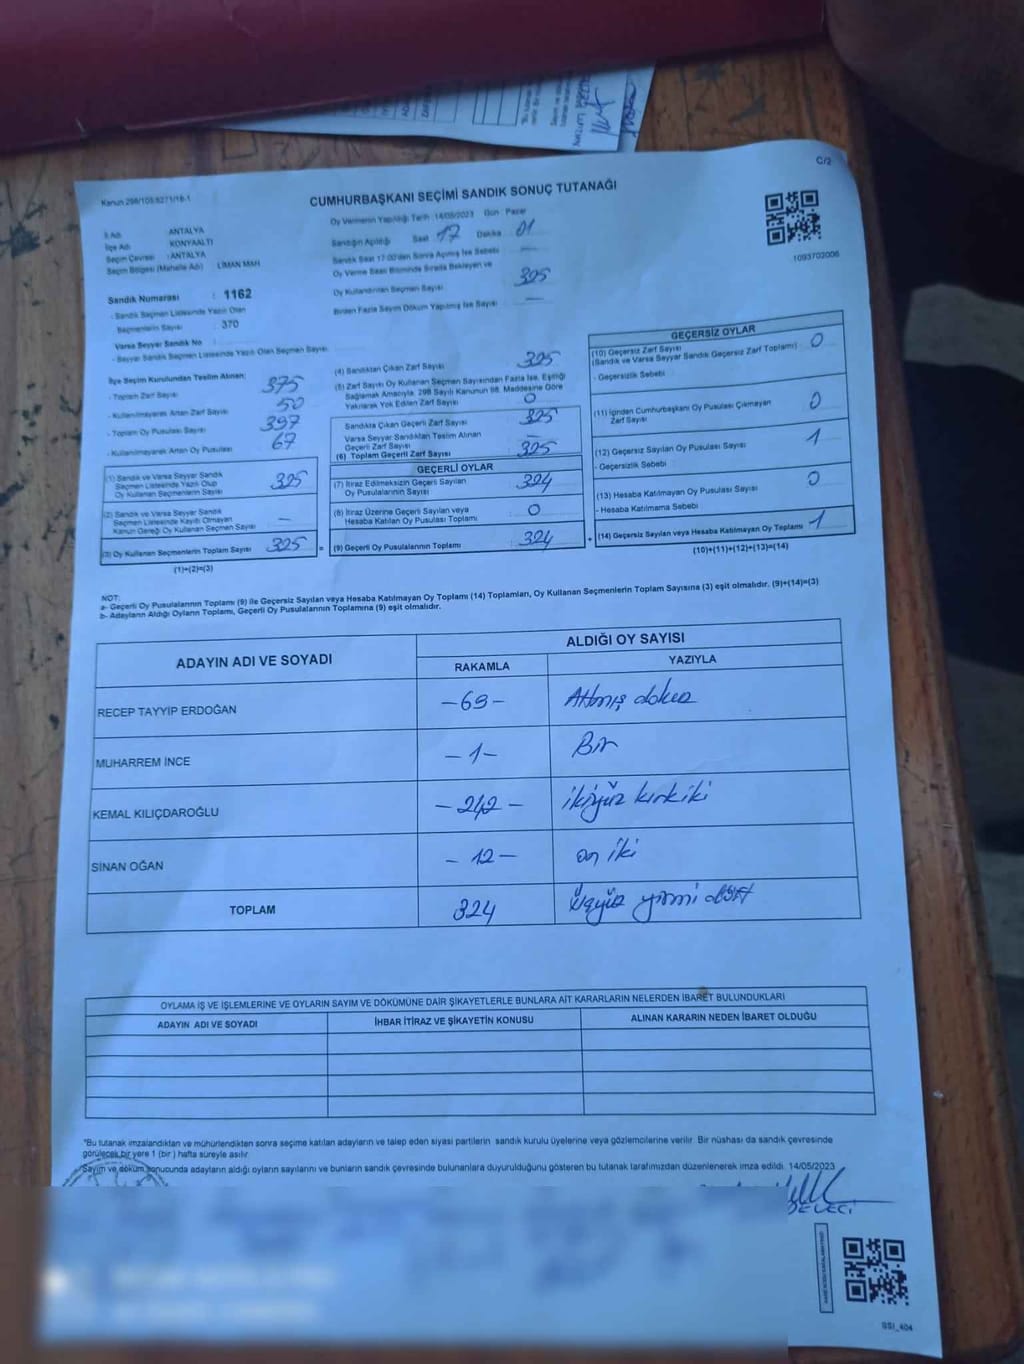 C/2
Kanun 298/105;6271/16-1
CUMHURBAŞKANI SEÇİMİ SANDIK SONUÇ TUTANAĞI
İl Adı : ANTALYA
İlçe Adı : KONYAALTI
Seçim Çevresi : ANTALYA
Seçim Bölgesi (Mahalle Adı) : LİMAN MAH
Sandık Numarası : 1162
- Sandık Seçmen Listesinde Yazılı Olan
Seçmenlerin Sayısı : 370
Varsa Seyyar Sandık No :
- Seyyar Sandık Seçmen Listesinde Yazılı Olan Seçmen Sayısı:
Oy Vermenin Yapıldığı Tarih : 14/05/2023 Gün : Pazar
Sandığın Açıldığı Saat 17 Dakika 01
Sandık Saat 17:00'den Sonra Açılmış İse Sebebi —
Oy Verme Saati Bitiminde Sırada Bekleyen ve
Oy Kullandırılan Seçmen Sayısı 325
Birden Fazla Sayım Döküm Yapılmış İse Sayısı —
1093702006
İlçe Seçim Kurulundan Teslim Alınan;
- Toplam Zarf Sayısı 375
- Kullanılmayarak Artan Zarf Sayısı 50
- Toplam Oy Pusulası Sayısı 397
- Kullanılmayarak Artan Oy Pusulası 67
(1) Sandık ve Varsa Seyyar Sandık
Seçmen Listesinde Yazılı Olup
Oy Kullanan Seçmenlerin Sayısı 325
(2) Sandık ve Varsa Seyyar Sandık
Seçmen Listesinde Kayıtlı Olmayan
Kanun Gereği Oy Kullanan Seçmen Sayısı —
(3) Oy Kullanan Seçmenlerin Toplam Sayısı 325 =
(1)+(2)=(3)
(4) Sandıktan Çıkan Zarf Sayısı 325
(5) Zarf Sayısı Oy Kullanan Seçmen Sayısından Fazla İse, Eşitliği
Sağlamak Amacıyla, 298 Sayılı Kanunun 98. Maddesine Göre
Yakılarak Yok Edilen Zarf Sayısı 0
Sandıkta Çıkan Geçerli Zarf Sayısı 325
Varsa Seyyar Sandıktan Teslim Alınan
Geçerli Zarf Sayısı —
(6) Toplam Geçerli Zarf Sayısı 325
GEÇERLİ OYLAR
(7) İtiraz Edilmeksizin Geçerli Sayılan
Oy Pusulalarının Sayısı 324
(8) İtiraz Üzerine Geçerli Sayılan veya
Hesaba Katılan Oy Pusulası Toplamı 0
(9) Geçerli Oy Pusulalarının Toplamı 324 +
GEÇERSİZ OYLAR
(10) Geçersiz Zarf Sayısı 0
(Sandık ve Varsa Seyyar Sandık Geçersiz Zarf Toplamı)
- Geçersizlik Sebebi
(11) İçinden Cumhurbaşkanı Oy Pusulası Çıkmayan
Zarf Sayısı 0
(12) Geçersiz Sayılan Oy Pusulası Sayısı 1
- Geçersizlik Sebebi
(13) Hesaba Katılmayan Oy Pusulası Sayısı 0
- Hesaba Katılmama Sebebi
(14) Geçersiz Sayılan veya Hesaba Katılmayan Oy Toplamı 1
(10)+(11)+(12)+(13)=(14)
NOT:
a- Geçerli Oy Pusulalarının Toplamı (9) ile Geçersiz Sayılan veya Hesaba Katılmayan Oy Toplamı (14) Toplamları, Oy Kullanan Seçmenlerin Toplam Sayısına (3) eşit olmalıdır. (9)+(14)=(3)
b- Adayların Aldığı Oyların Toplamı, Geçerli Oy Pusulalarının Toplamına (9) eşit olmalıdır.
ADAYIN ADI VE SOYADI
ALDIĞI OY SAYISI
RAKAMLA YAZIYLA
RECEP TAYYİP ERDOĞAN -69- Altmış dokuz
MUHARREM İNCE -1- Bir
KEMAL KILIÇDAROĞLU -242- ikiyüz kırk iki
SİNAN OĞAN -12- on iki
TOPLAM 324 Üçyüz yirmi dört
OYLAMA İŞ VE İŞLEMLERİNE VE OYLARIN SAYIM VE DÖKÜMÜNE DAİR ŞİKAYETLERLE BUNLARA AİT KARARLARIN NELERDEN İBARET BULUNDUKLARI
ADAYIN ADI VE SOYADI İHBAR İTİRAZ VE ŞİKAYETİN KONUSU ALINAN KARARIN NEDEN İBARET OLDUĞU
*Bu tutanak imzalandıktan ve mühürlendikten sonra seçime katılan adayların ve talep eden siyasi partilerin sandık kurulu üyelerine veya gözlemcilerine verilir. Bir nüshası da sandık çevresinde
görülecek bir yere 1 (bir ) hafta süreyle asılır.
Sayım ve döküm sonucunda adayların aldığı oyların sayılarını ve bunların sandık çevresinde bulunanlara duyurulduğunu gösteren bu tutanak tarafımızdan düzenlenerek imza edildi. 14/05/2023
SSI_404